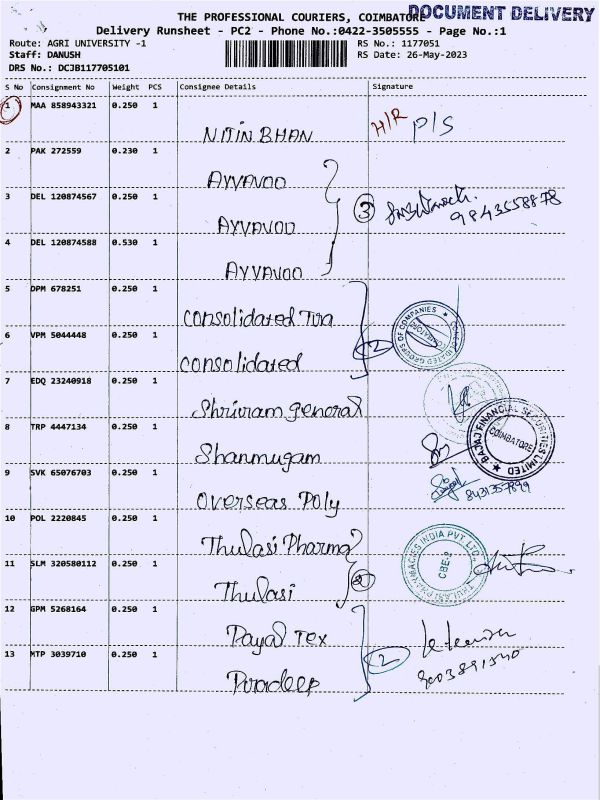 THE PROFESSIONAL COURIERS, COIMBATORE
DOCUMENT DELIVERY
Delivery Runsheet - PC2 - Phone No.:0422-3505555 - Page No.:1
Route: AGRI UNIVERSITY -1 RS No.: 1177051
Staff: DANUSH RS Date: 26-May-2023
DRS No.: DCJB117705101
S No Consignment No Weight PCS Consignee Details Signature
1 MAA 858943321 0.250 1
NITIN BHAN H/R P/S
2 PAK 272559 0.230 1
AYYAVOO
3 DEL 120874567 0.250 1
AYYAVOO 3 9843558878
4 DEL 120874588 0.530 1
AYYAVOO
5 DPM 678251 0.250 1
Consolidated
CONSOLIDATED GROUPS OF COMPANIES
6 VPM 5044448 0.250 1
Consolidated 2
7 EDQ 23240918 0.250 1
Shriram general
8 TRP 4447134 0.250 1
BAJAJ FINANCIAL SECURITIES LIMITED
COIMBATORE
Shanmugam
9 SVK 65076703 0.250 1
Overseas Poly
10 POL 2220845 0.250 1
Thulasi Pharma
THULASI PHARMACIES INDIA PVT. LTD.
CBE-2
11 SLM 320580112 0.250 1
Thulasi 2
12 GPM 5268164 0.250 1
Payal Tex
13 MTP 3039710 0.250 1 2
Puradeep